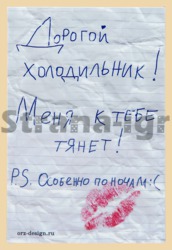 Дорогой
холодильник!
Меня к тебе
тянет!
P.S. Особенно по ночам :(
Strana-Igr
orz-design.ru